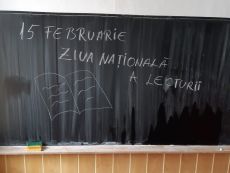 15 FEBRUARIE
ZIUA NAȚIONALĂ
A LECTURII